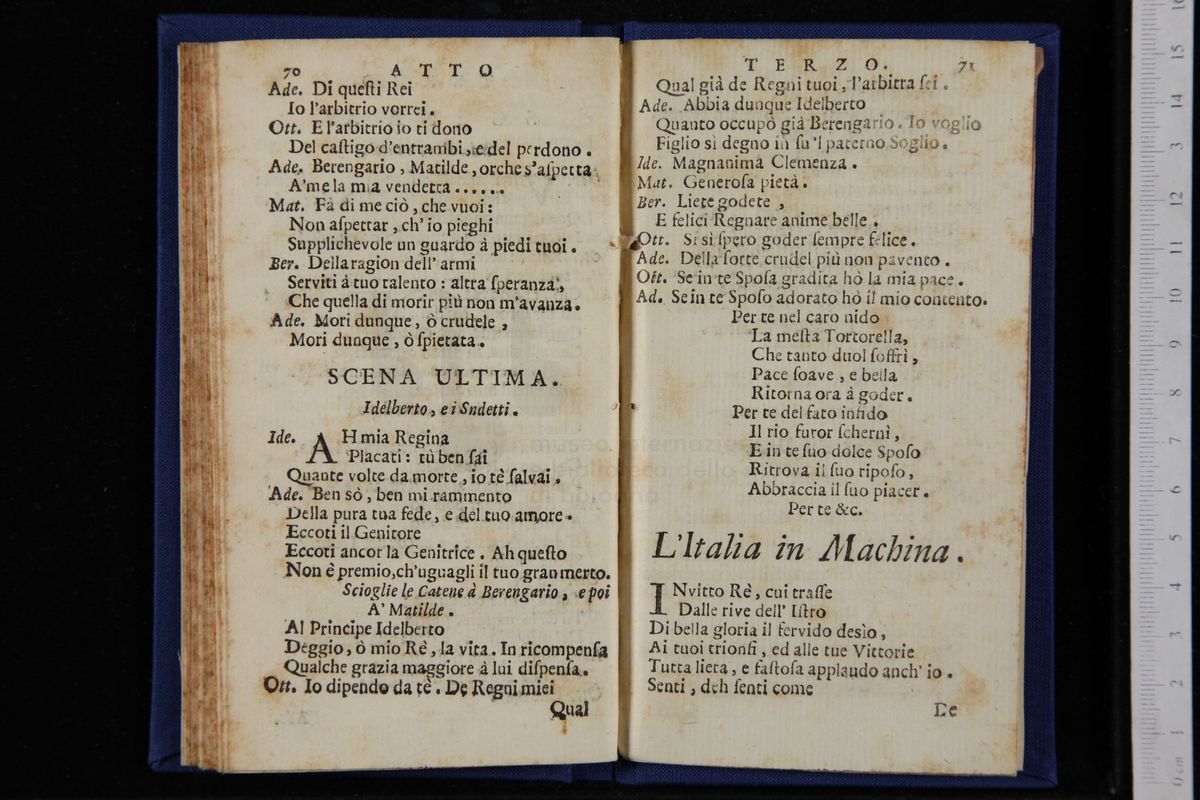 70 ATTO
Ade. Di queſti Rei
Io l'arbitrio vorrei.
Ott. E l'arbitrio io ti dono
Del caſtigo d'entrambi, e del perdono.
Ade. Berengario, Matilde, or che s'aſpetta
A' me la mia vendetta......
Mat. Fà di me ciò, che vuoi:
Non aſpettar, ch' io pieghi
Supplichevole un guardo à piedi tuoi.
Ber. Della ragion dell' armi
Serviti à tuo talento: altra ſperanza,
Che quella di morir più non m'avanza.
Ade. Mori dunque, ò crudele,
Mori dunque, ò ſpietata.
SCENA ULTIMA.
Idelberto, e i Sudetti.
Ide. AH mia Regina
Placati: tù ben ſai
Quante volte da morte, io tè ſalvai.
Ade. Ben sò, ben mi rammento
Della pura tua fede, e del tuo amore.
Eccoti il Genitore
Eccoti ancor la Genitrice. Ah queſto
Non è premio, ch'uguagli il tuo gran merto.
Scioglie le Catene à Berengario, e poi
A' Matilde.
Al Principe Idelberto
Deggio, ò mio Rè, la vita. In ricompenſa
Qualche grazia maggiore à lui diſpenſa.
Ott. Io dipendo da tè. De Regni miei
Qual
TERZO. 71
Qual già de Regni tuoi, l'arbitra ſei.
Ade. Abbia dunque Idelberto
Quanto occupò già Berengario. Io voglio
Figlio sì degno in ſu 'l paterno Soglio.
Ide. Magnanima Clemenza.
Mat. Generoſa pietà.
Ber. Liete godete,
E felici Regnare anime belle.
Ott. Si sì ſpero goder ſempre felice.
Ade. Della ſorte crudel più non pavento.
Ott. Se in te Spoſa gradita hò la mia pace.
Ad. Se in te Spoſo adorato hò il mio contento.
Per te nel caro nido
La meſta Tortorella,
Che tanto duol ſoffrì,
Pace ſoave, e bella
Ritorna ora à goder.
Per te del fato infido
Il rio furor ſchernì,
E in te ſuo dolce Spoſo
Ritrova il ſuo ripoſo,
Abbraccia il ſuo piacer.
Per te &c.
L'Italia in Machina.
INvitto Rè, cui traſſe
Dalle rive dell' Iſtro
Di bella gloria il fervido desìo,
Ai tuoi trionfi, ed alle tue Vittorie
Tutta lieta, e faſtoſa applaudo anch' io.
Senti, deh ſenti come
De